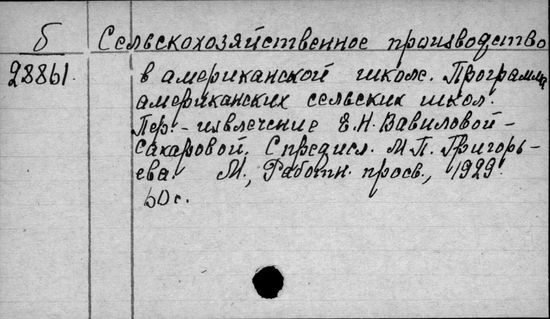 б Сельскохозяйственное производство
28861. в американской школе. Программы
американских сельских школ.
Пер.-извлечение Е.Н. Вавиловой-
Сахаровой. С предисл. М.П. Григорь-
ева М., Работн. просв., 1929.
60 с.